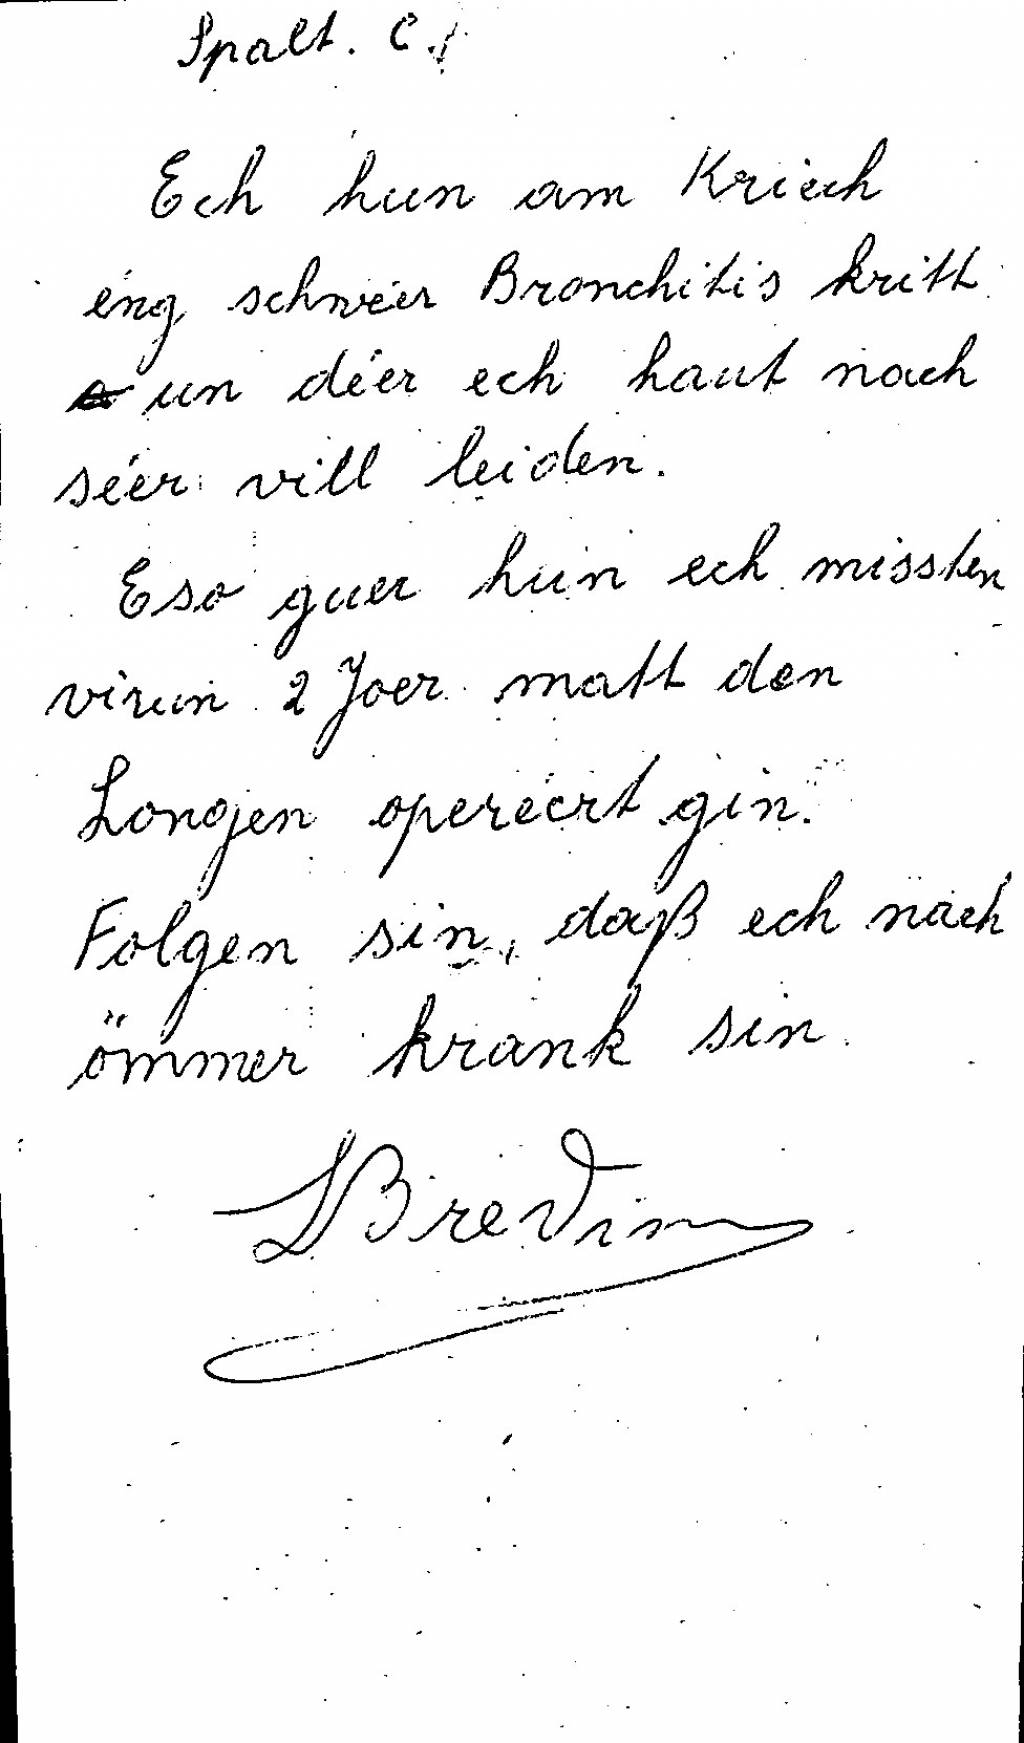 Spalt. C.
Ech hun am Kriech
éng schwéier Bronchitis kritt
un déer ech haut noch
séer vill leiden.
Eso guer hun ech missten
virun 2 Joer matt den
Longen operéert gin.
Folgen sin, daß ech nach
ömmer krank sin.